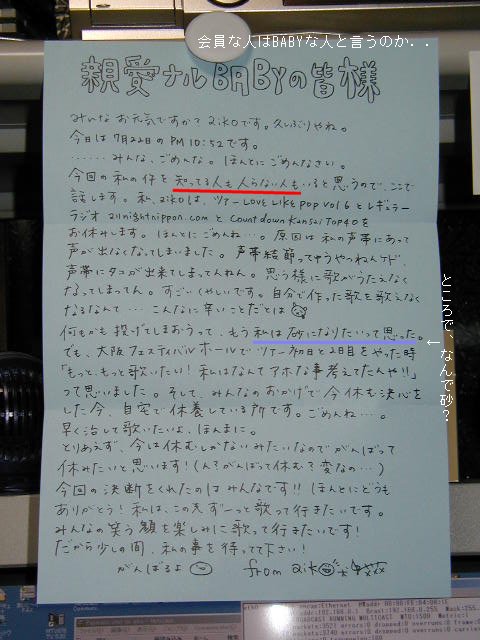 会員な人はBABYな人と言うのか．．
親愛ナルBABYの皆様
みんなお元気ですか？aikoです。久しぶりやね。
今日は7月22日のPM10:52です。
……みんな、ごめんな。ほんとにごめんなさい。
今回の私の件を知ってる人も人らない人もいると思うので、ここで
話します。私、aikoは、ツアーLOVE LIKE POP VOL6とレギュラー
ラジオallnightnippon.comとCountdown Kansai Top40を
お休みします。ほんとにごめんね…。原因は私の声帯にあって
声が出なくなってしまいました。声帯結節ってゆうやつやねんけド、
声帯にタコが出来てしまってんねん。思う様に歌がうたえなく
なってしまってん。すごいくやしいです。自分で作った歌を歌えなく
なるなんて…こんなに辛いことだとは
何もかも投げてしまおうって、もう私は砂になりたいって思った。
でも、大阪フェスティバルホールでツアー初日と2日目をやった時
「もっと、もっと歌いたい！私はなんてアホな事考えてたんや!!」
って思いました。そして、みんなのおかげで今休む決心を
した今、自宅で休養している所です。ごめんね…。
早く治して歌いたいよ、ほんまに。
とりあえず、今は休むしかないみたいなのでがんばって
休みたいと思います！(ん？がんばって休む？変なの…)
今回の決断をくれたのはみんなです!!ほんとにどうも
ありがとう！私は、この先ずーっと歌って行きたいです。
みんなの笑う顔を楽しみに歌って行きたいです！
だから少しの間、私の事を待ってて下さい！
がんばるよ from aiko
ところで、なんで砂？
←
Link encap:Ethernet HWaddr
inet addr:192.168.0.1 Bcast:192.168.0.255
BROADCAST RUNNING MULTICAST MTU:1500 Metric:1